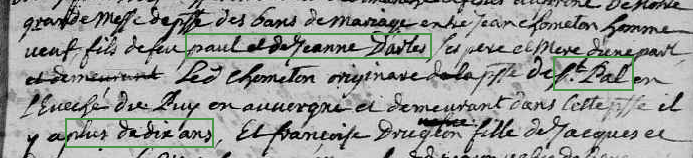 grande messe de psse des bans de mariage entre Jean chometon homme
veuf fils de feu paul et de Jeanne Dastes ses pere et Mere d'une part
et demeurant Led chometon originaire de la psse de St. Pal en
l'Eveché du Puy en auvergne et demeurant dans cette psse il
y a plus de dix ans, Et françoise Drugeon fille de Jacques et